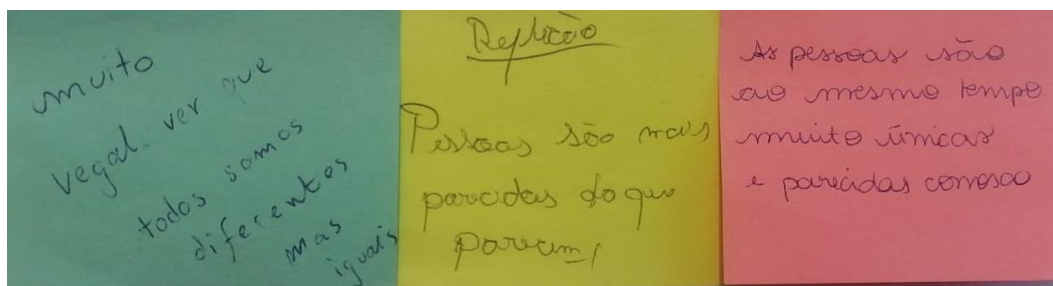 muito
vegal ver que
todos somos
diferentes
mas
iguais
Reflicão
Pessoas são mais
parecidas do que
parecem!
As pessoas são
ao mesmo tempo
muito únicas
e parecidas conosco